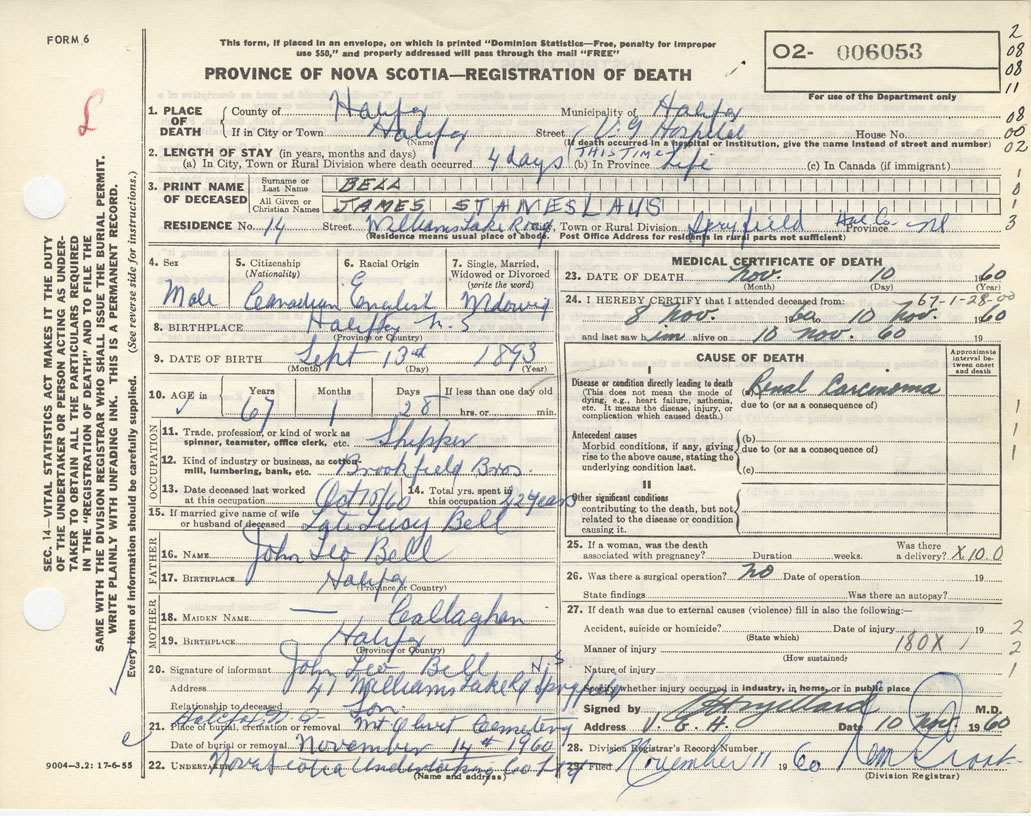 FORM 6
This form, if placed in an envelope, on which is printed "Dominion Statistics—Free, penalty for improper
use $50," and properly addressed will pass through the mail "FREE"
PROVINCE OF NOVA SCOTIA—REGISTRATION OF DEATH
O2- 006053
For use of the Department only
2
08
08
11
08
00
02
SEC. 14—VITAL STATISTICS ACT MAKES IT THE DUTY
OF THE UNDERTAKER OR PERSON ACTING AS UNDER-
TAKER TO OBTAIN ALL THE PARTICULARS REQUIRED
IN THE "REGISTRATION OF DEATH" AND TO FILE THE
SAME WITH THE DIVISION REGISTRAR WHO SHALL ISSUE THE BURIAL PERMIT.
WRITE PLAINLY WITH UNFADING INK. THIS IS A PERMANENT RECORD.
Every item of information should be carefully supplied. (See reverse side for instructions.)
1. PLACE OF DEATH
County of Halifax Municipality of Halifax
If in City or Town Halifax Street V.G Hospital House No.
(Name) (If death occurred in a hospital or institution, give the name instead of street and number)
2. LENGTH OF STAY (in years, months and days) THIS TIME
(a) In City, Town or Rural Division where death occurred 4 days (b) In Province Life (c) In Canada (if immigrant)
3. PRINT NAME OF DECEASED
Surname or Last Name BELL
All Given or Christian Names JAMES STANESLAUS
RESIDENCE No. 14 Street Williams Lake Road, Town or Rural Division Spryfield Hal Co Province
(Residence means usual place of abode. Post Office Address for residents in rural parts not sufficient)
4. Sex 5. Citizenship (Nationality) 6. Racial Origin 7. Single, Married, Widowed or Divorced (write the word)
Male Canadian English
8. BIRTHPLACE Halifax N.S
(Province or Country)
9. DATE OF BIRTH Sept 13 1893
(Month) (Day) (Year)
10. AGE in Years 67 Months 1 Days 28 If less than one day old hrs. or min.
OCCUPATION
11. Trade, profession, or kind of work as spinner, teamster, office clerk, etc. Shipper
12. Kind of industry or business, as cotton mill, lumbering, bank, etc. Brookfield Bros.
13. Date deceased last worked at this occupation Oct 10/60 14. Total yrs. spent in this occupation 42 years
15. If married give name of wife or husband of deceased Late Lucy Bell
FATHER
16. NAME John Leo Bell
17. BIRTHPLACE Halifax
(Province or Country)
MOTHER
18. MAIDEN NAME — Callaghan
19. BIRTHPLACE Halifax
(Province or Country)
20. Signature of informant John Leo Bell N.S
Address 47 Williams Lake Rd Spryfield
Relationship to deceased Son
21. Place of burial, cremation or removal Mt Olivet Cemetery
Halifax N.S
Date of burial or removal November 14th 1960
22. UNDERTAKER Nova Scotia Undertaking Co Ltd
(Name and address)
9004—3.2: 17-6-55
MEDICAL CERTIFICATE OF DEATH
23. DATE OF DEATH Nov. 10 1960
(Month) (Day) (Year)
24. I HEREBY CERTIFY that I attended deceased from: 67-1-28-00
8 Nov. 1960 to 10 Nov. 1960
and last saw him alive on 10 Nov. 60 19
CAUSE OF DEATH
Approximate interval between onset and death
I
Disease or condition directly leading to death (a) Renal Carcinoma
(This does not mean the mode of dying, e.g., heart failure, asthenia, etc. It means the disease, injury, or complication which caused death.)
due to (or as a consequence of)
Antecedent causes
Morbid conditions, if any, giving rise to the above cause, stating the underlying condition last.
(b)
due to (or as a consequence of)
(c)
II
Other significant conditions
contributing to the death, but not related to the disease or condition causing it.
25. If a woman, was the death associated with pregnancy? Duration weeks. Was there a delivery? X100
26. Was there a surgical operation? No Date of operation 19
State findings Was there an autopsy?
27. If death was due to external causes (violence) fill in also the following:—
Accident, suicide or homicide? Date of injury 19
(State which)
Manner of injury 180X
(How sustained)
Nature of injury
Specify whether injury occurred in industry, in home, or in public place
Signed by M.D.
Address V. G. H. Date 10 Nov. 1960
28. Division Registrar's Record Number
29. Filed November 11 1960
(Division Registrar)